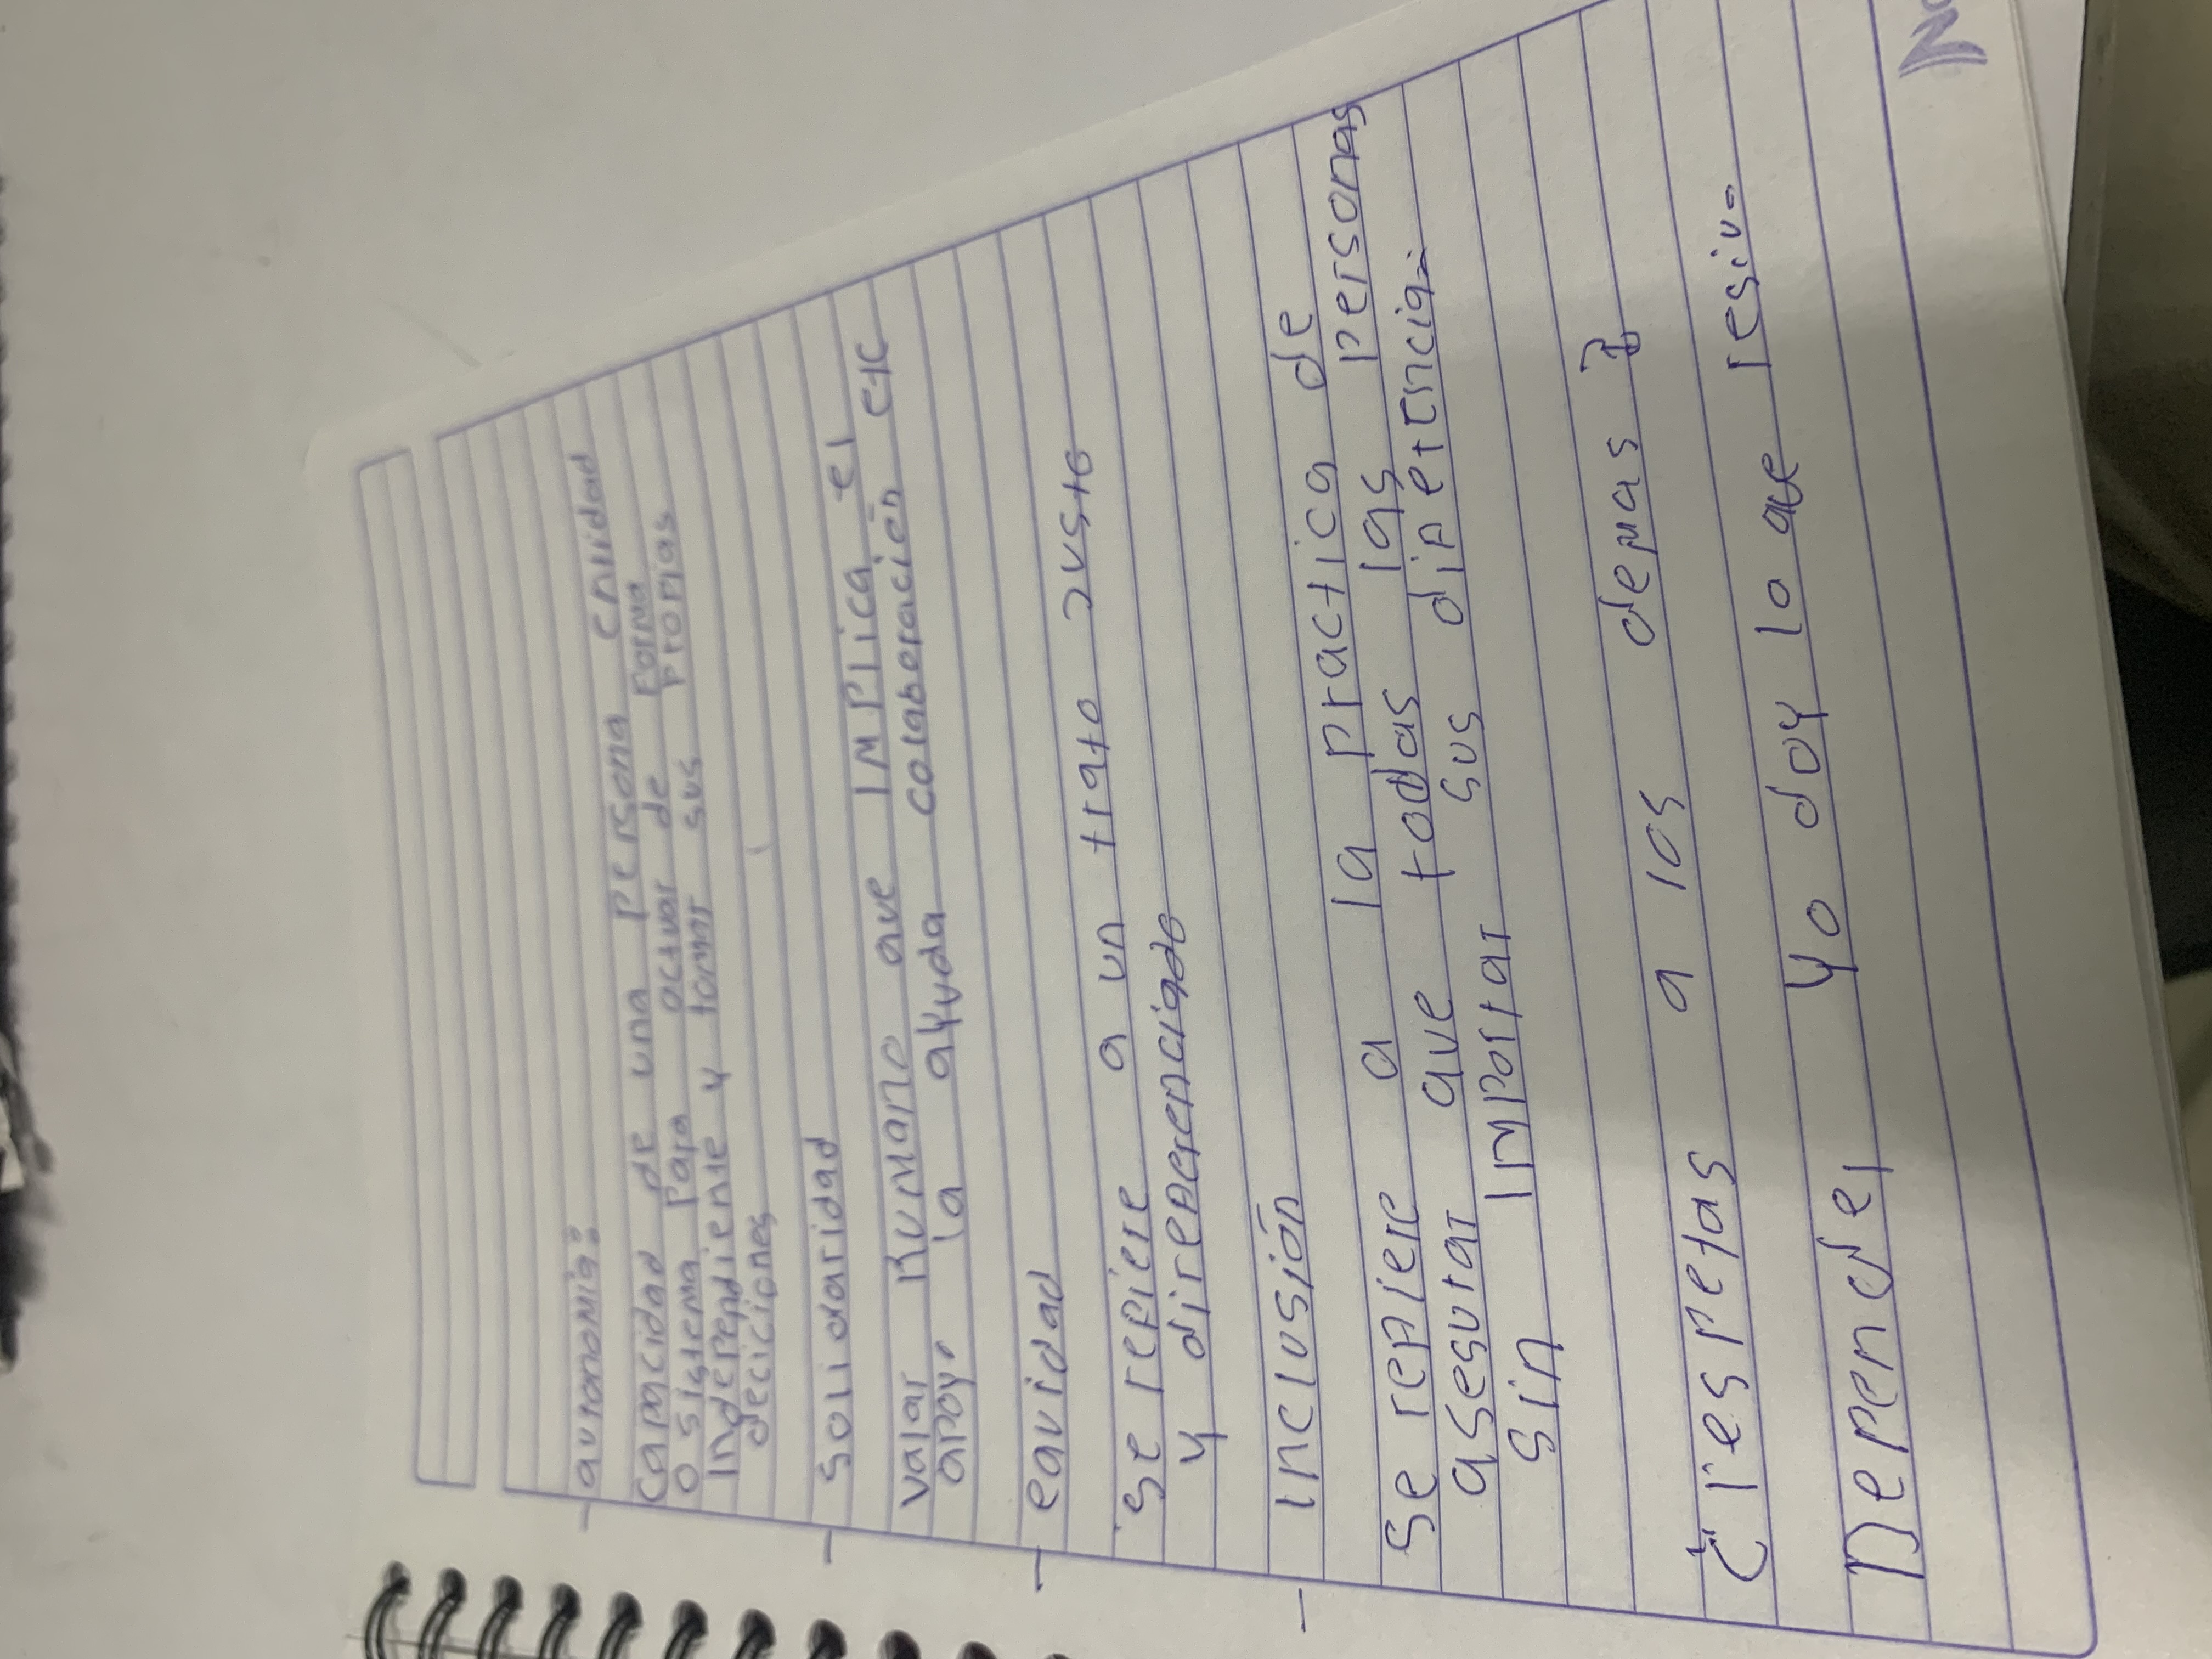 autonomia:
Capacidad de una persona entidad
o sistema para actuar de forma
Independiente y tomar sus propias
deciciones
Solidaridad
valor humano que implica el
apoyo, la ayuda colaboración etc
equidad
se refiere a un trato justo
y direnferenciado
inclusión
Se refiere a la practica de
asegurar que todas las personas
sin Importar sus diferencia.
¿respetas a los demas?
Depende, yo doy lo que resivo
No